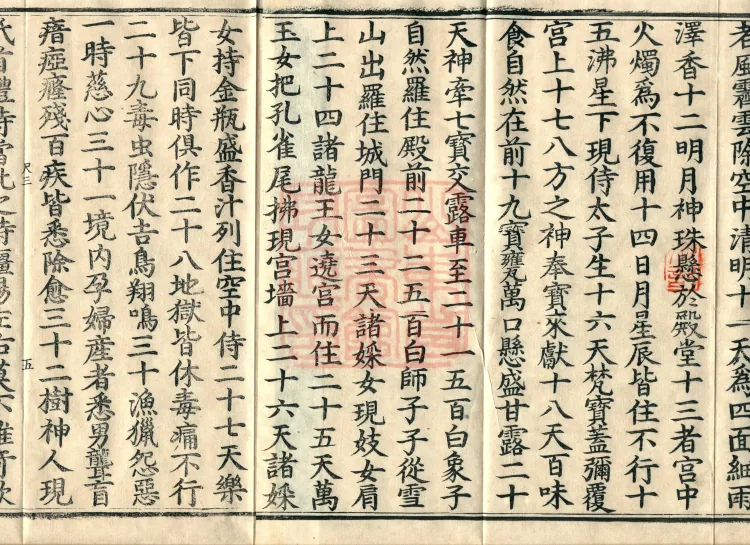 若風霽雲除空中清明十一天爲四面細雨
澤香十二明月神珠懸於殿堂十三者宮中
火燭爲不復用十四日月星辰皆住不行十
五沸星下現侍太子生十六天梵寶蓋彌覆
宮上十七八方之神奉寶來獻十八天百味
食自然在前十九寶甕萬口懸盛甘露二十
天神牽七寶交露車至二十一五百白象子
自然羅住殿前二十二五百白師子子從雪
山出羅住城門二十三天諸婇女現妓女肩
上二十四諸龍王女遶宮而住二十五天萬
玉女把孔雀尾拂現宮墻上二十六天諸婇
女持金瓶盛香汁列住空中侍二十七天樂
皆下同時俱作二十八地獄皆休毒痛不行
二十九毒虫隱伏吉鳥翔鳴三十漁獵怨惡
一時慈心三十一境内孕婦産者悉男聾盲
瘖瘂癃殘百疾皆悉除愈三十二樹神人現
尺三　五
首禮侍當此之時疆場左右莫不雅奇歎